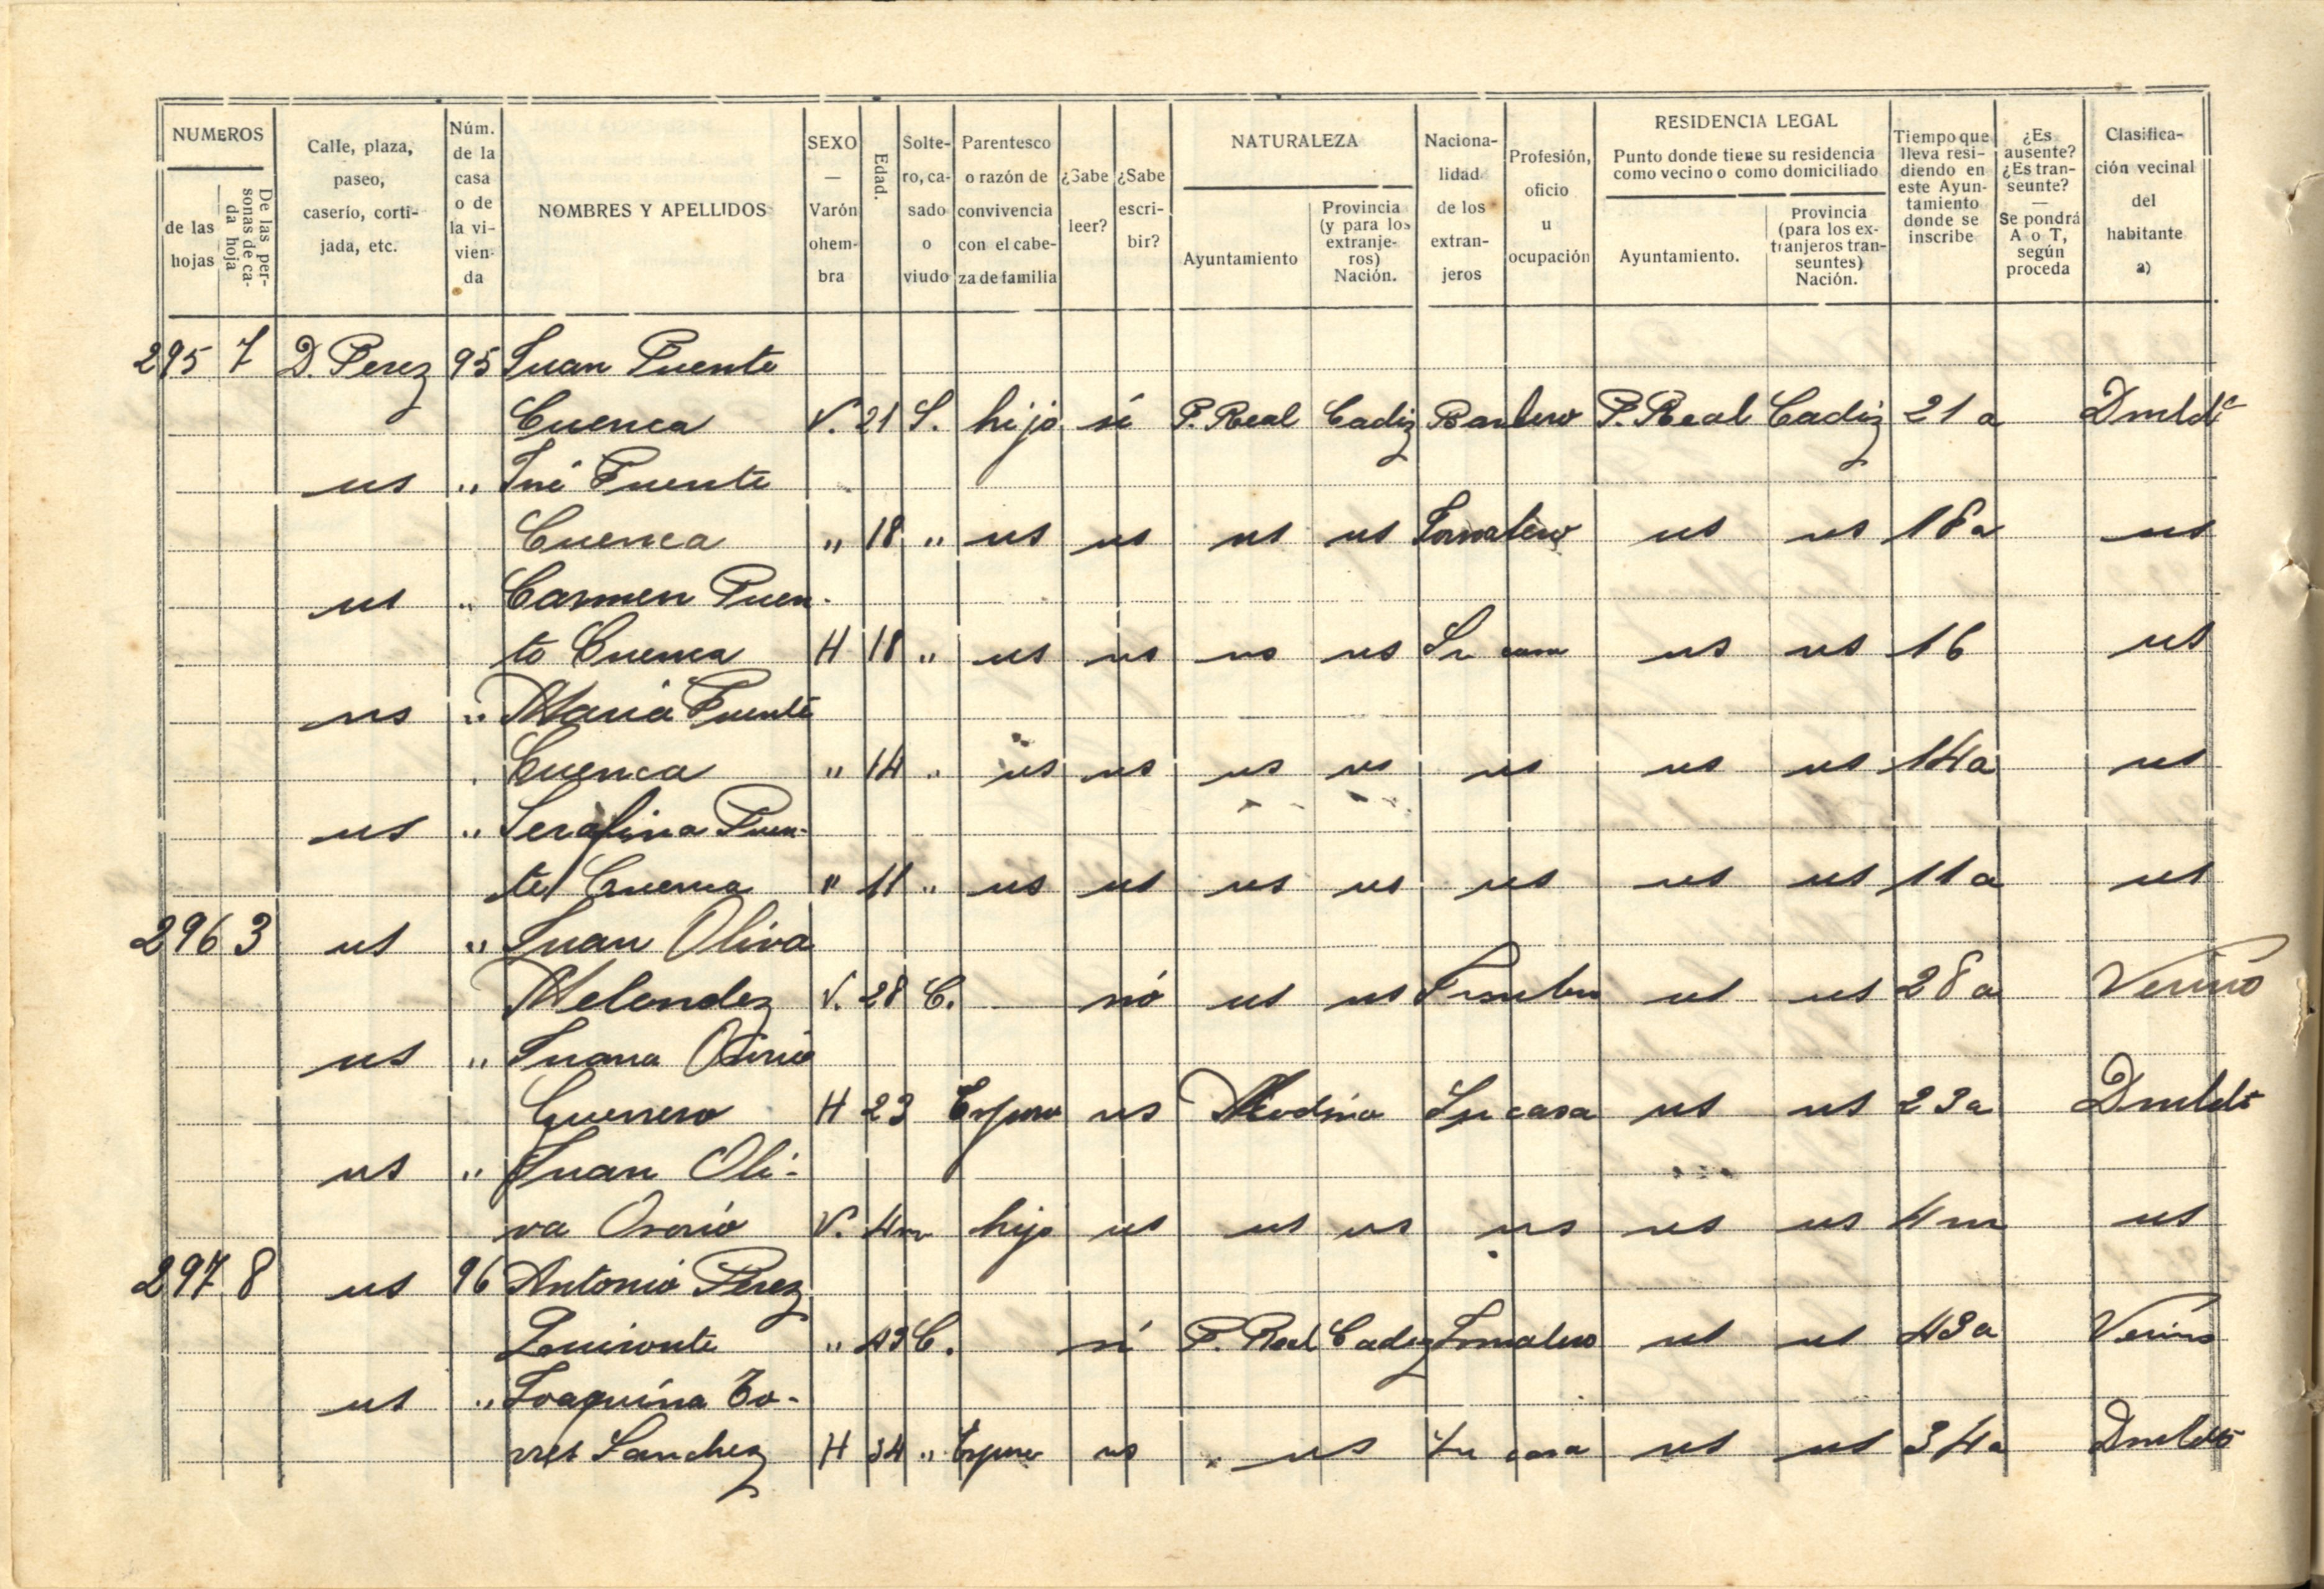 NUMEROS
de las hojas
De las personas de cada hoja
Calle, plaza, paseo, caserío, cortijada, etc.
Núm. de la casa o de la vivienda
NOMBRES Y APELLIDOS
SEXO — Varón o hembra
Edad.
Soltero, casado o viudo
Parentesco o razón de convivencia con el cabeza de familia
¿Sabe leer?
¿Sabe escribir?
NATURALEZA
Ayuntamiento
Provincia (y para los extranjeros) Nación.
Nacionalidad de los extranjeros
Profesión, oficio u ocupación
RESIDENCIA LEGAL
Punto donde tiene su residencia como vecino o como domiciliado
Ayuntamiento.
Provincia (para los extranjeros transeuntes) Nación.
Tiempo que lleva residiendo en este Ayuntamiento donde se inscribe
¿Es ausente? ¿Es transeunte? — Se pondrá A o T, según proceda
Clasificación vecinal del habitante a)
295 7 D. Perez 95 Juan Puente
Cuenca V. 21 S. hijo si P. Real Cadiz P. Real Cadiz 21 a
us " José Puente
Cuenca " 18 " us us us us us us 18 a us
us " Carmen Puen-
te Cuenca H 18 " us us us us Su casa us us 16 us
us " Maria Puente
Cuenca " 14 " us us us us us us us 14 a us
us " Serafina Puen-
te Cuenca " 11 " us us us us us us us 11 a us
296 3 us " Juan Oliva
Melendez V. 28 C. nó us us us us 28 a Vecino
us " Juana Osorio
Guerrero H 23 Esposa us Medina Su casa us us 23 a
us " Juan Oli-
va Osorio V. 4m hijo us us us us us us 4 m us
297 8 us 96 Antonio Perez
" 43 C. si P. Real Cadiz us us 43 a Vecino
us " Joaquina To-
rres Sanchez H 34 " Esposa us " us Su casa us us 34 a